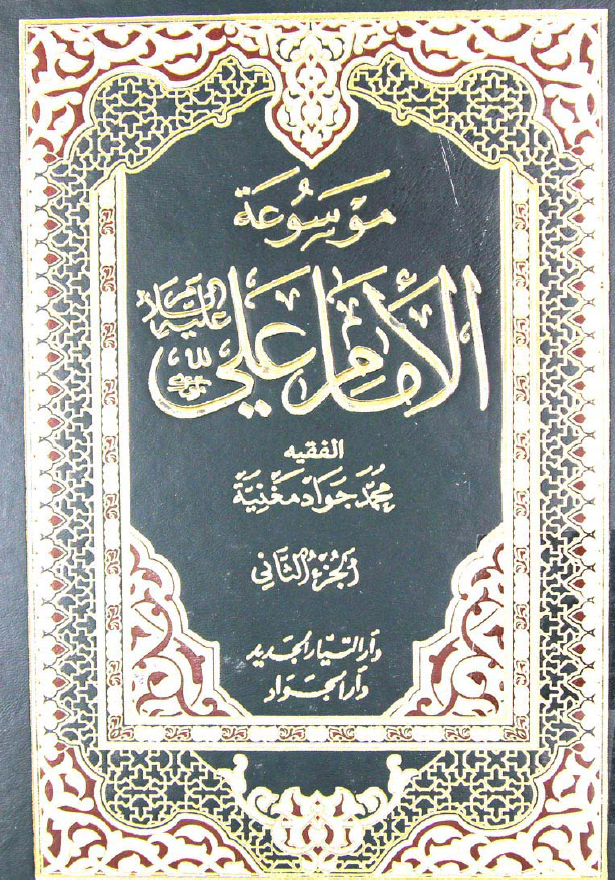 موسوعة
الإمام علي عليه السلام
الفقيه
محمد جواد مغنية
الجزء الثاني
دار التيار الجديد
دار الجواد